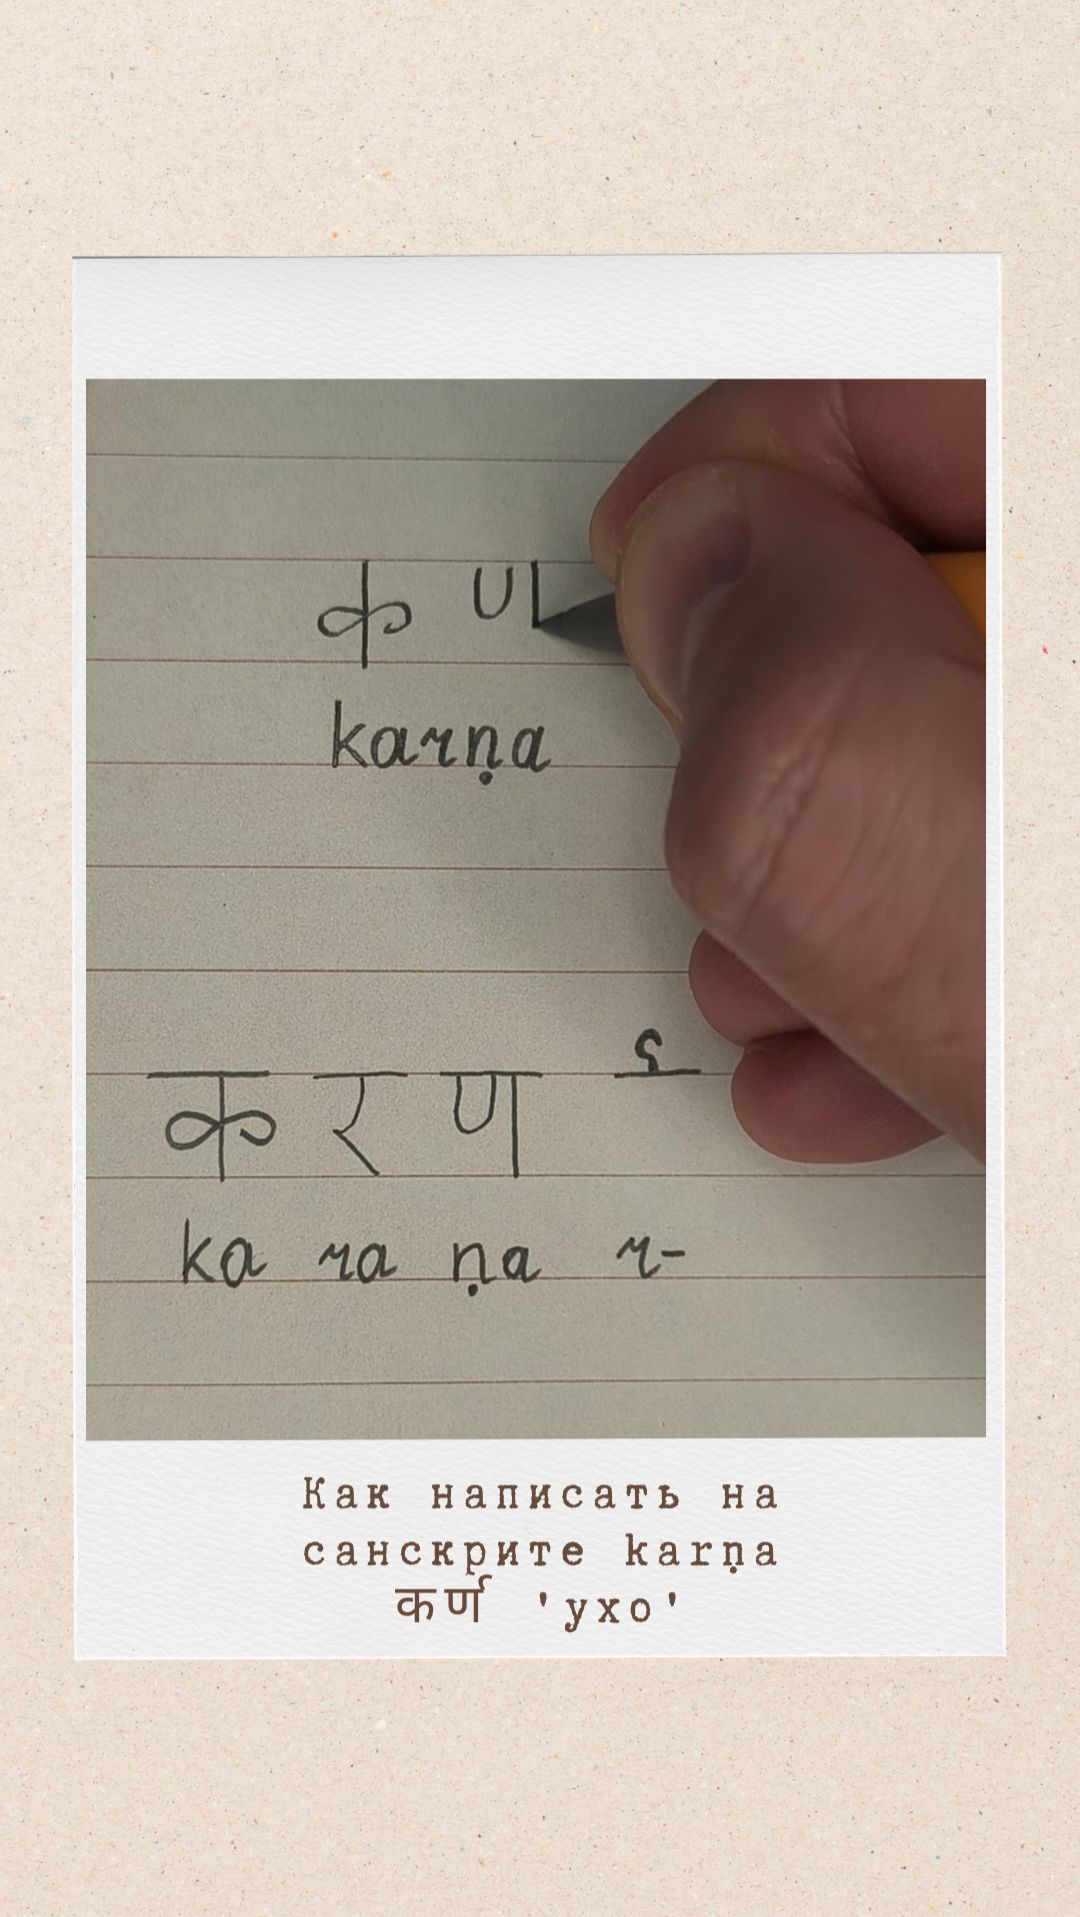 क ण
karṇa
क र ण र्
ka ra ṇa r-
Как написать на
санскрите karṇa
कर्ण 'ухо'